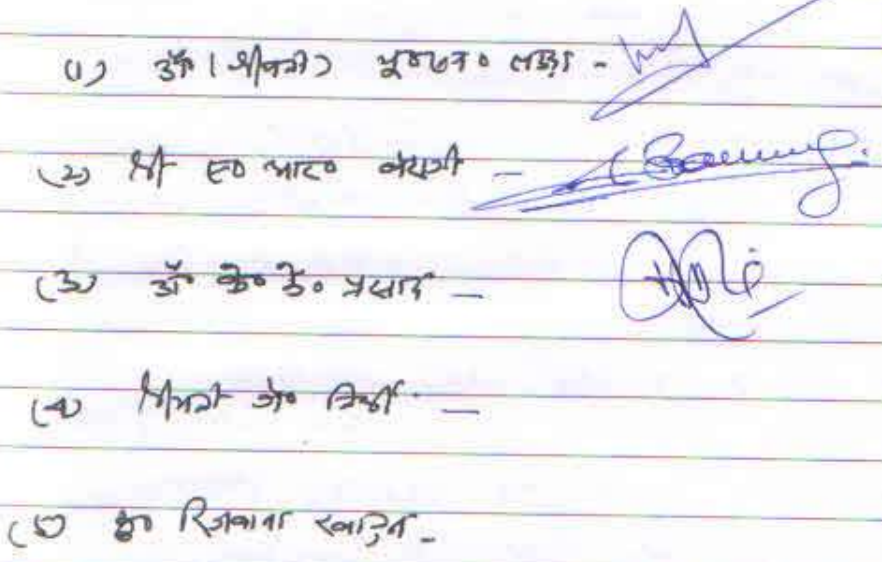 (1) डॉ (श्रीमती) एम० लकड़ा -
(2) श्री ए० आर० बेरागी -
(3) डॉ के० के० प्रसाद -
(4) श्रीमती जे० तिर्की -
(5) कु० रिजवाना खातून -